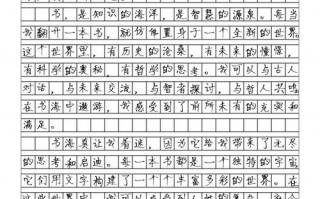 书，是知识的海洋，是智慧的源泉。每当
我翻开一本书，就仿佛置身于一个全新的世界。
这个世界里，有历史的沧桑，有未来的憧憬，
有科学的奥秘，有哲学的思考。我可以与古人
对话，与未来交流，与智者探讨，与哲人共鸣
在书海中遨游，我感受到了前所未有的充实和
满足。
书海真让我着迷，因为它给我带来了无尽
的思考和启迪。每一本书都是一个独特的宇宙
它们用文字构建了一个个丰富多彩的世界。在